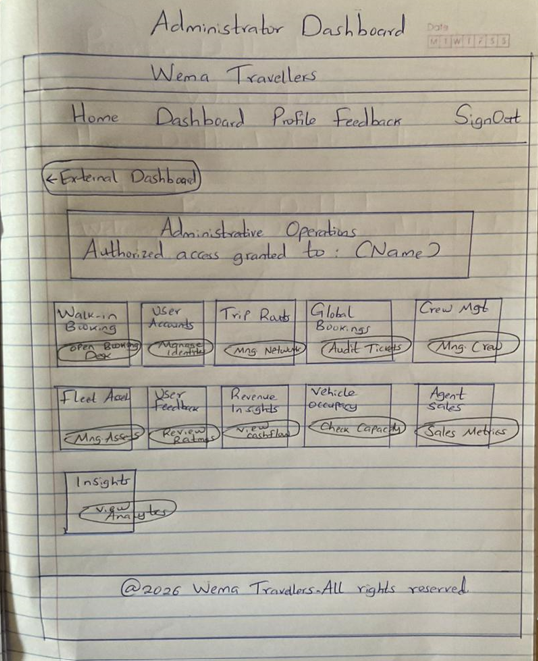 Administrator Dashboard
Date
M T W T F S S
Wema Travellers
Home Dashboard Profile Feedback SignOut
←External Dashboard
Administrative Operations
Authorized access granted to: (Name)
Walk-in
Booking
open Booking
Desk
User
Accounts
Manage
Identity
Trip Routs
Mng Network
Global
Bookings
Audit Tickets
Crew Mgt
Mng Crew
Fleet Asset
Mng Assets
User
Feedback
Review
Ratings
Revenue
Insights
View
cashflow
Vehicle
occupacy
Check Capacity
Agent
Sales
Sales Metrics
Insights
View
Analytes
@2026 Wema Travellers-All rights reserved